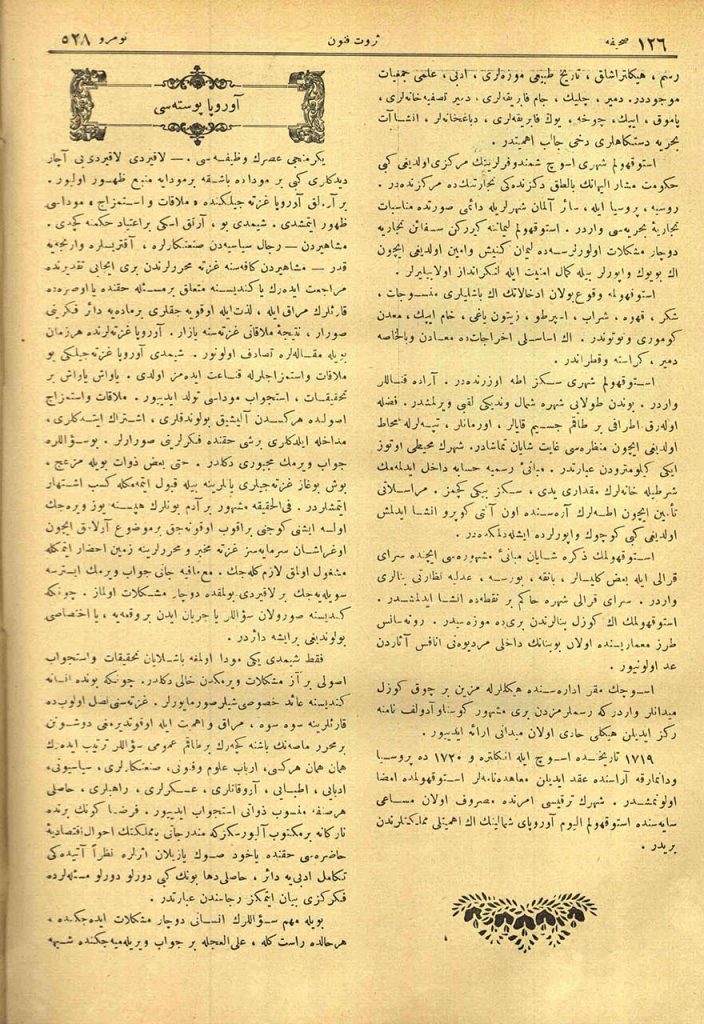 ١٢٦ صحیفه
ثروت فنون
نومرو ٥٢٨
رسم ، هیكلتراشلق ، تاریخ طبیعی موزه‌لری ، ادبی ، علمی جمعیات
موجوددر . دمیر ، چلیك ، جام فابریقه‌لری ، دمیر تصفیه‌خانه‌لری ،
پاموق ، ایپك ، چوخه ، یوك فابریقه‌لری ، دباغخانه‌لر ، انشاآت
بحریه دستكاهلری دخی جالب اهمیتدر .
استوقهولم شهری اسوچ شمندوفرلرینك مركزی اولدیغی كبی
حكومت مشار الیهانك بالطق دكزنده‌كی تجارتنك‌ده مركزنده‌در .
روسیه ، پروسیا ایله ، سائر آلمان شهرلریله دائمی صورتده مناسبات
تجاریهٔ بحریه‌سی واردر . استوقهولم لیماننه كیرركن سفائن تجاریه
دوچار مشكلات اولورلرسه‌ده لیمان كنیش وامین اولدیغی ایچون
اك بویوك واپورلر بیله كمال امنیت ایله لنكرانداز اولابیلیرلر .
استوقهولمه وقوعبولان ادخالاتك اك باشلیلری منسوجات ،
شكر ، قهوه ، شراب ، اسپرطو ، زیتون یاغی ، خام ایپك ، معدن
كوموری وتوتوندر . اك اساسلی اخراجات‌ده معادن وبالخاصه
دمیر ، كراسته وقطراندر .
استوقهولم شهری سكز اطه اوزرنده‌در . آراده قناللر
واردر . بوندن طولایی شهره شمال وندیكی لقبی ویرلمشدر . فضله
اوله‌رق اطرافی بر طاقم جسیم قایالر ، اورمانلر ، تپه‌لرله محاط
اولدیغی ایچون منظره‌سی غایت شایان تماشادر . شهرك محیطی اوتوز
ایكی كیلومتره‌دن عبارتدر . مبانیٔ رسمیه حسابه داخل ایدلمه‌مك
شرطیله خانه‌لرك مقداری یدی ، سكز بیكی كچمز . مراسلاتی
تأمین ایچون اطه‌لرك آره‌سنده اون آلتی كوپرو انشا ایدلمش
اولدیغی كبی كوچوك واپورلرده ایشله‌دلمكده‌در .
استوقهولمك ذكره شایان مبانیٔ مشهوره‌سی ایچنده سرای
قرالی ایله بعض كلیسالر ، بانقه ، بورسه ، عدلیه نظارتی بنالری
واردر . سرای قرالی شهره حاكم بر نقطه‌ده انشا ایدلمشدر .
استوقهولمك اك كوزل بنالرندن بری‌ده موزه‌سیدر . رونه‌سانس
طرز معماریسنده اولان بوبنانك داخلی مردیوه‌نی انافس آثاردن
عد اولونیور .
اسوچك مقر اداره‌سنده هیكللرله مزین بر چوق كوزل
میدانلر واردركه رسملرمزدن بری مشهور كوستاو آدولف نامنه
ركز ایدیلن هیكلی حاوی اولان میدانی ارائه ایدییور .
١٧١٩ تاریخنده اسوچ ایله انكلتره و ١٧٢٠ ده پروسیا
ودانمارقه آراسنده عقد ایدیلن معاهده‌نامه‌لر استوقهولمده امضا
اولونمشدر . شهرك ترقیسی امرنده مصروف اولان مساعی
سایه‌سنده استوقهولم الیوم آوروپای شمالینك اك اهمیتلی مملكتلرندن
بریدر .
آوروپا پوسته‌سی
یكرمنجی عصرك وظیفه‌سی . — لاقیردی لاقیردی‌یی آچار
دیدكلری كبی بر موداده باشقه بر مودایه منبع ظهور اولیور .
بر آرالق آوروپا غزته‌جیلكنده « ملاقات و استمزاج » موداسی
ظهور ایتمشدی . شیمدی بو ، آرتق اسكی بر اعتیاد حكمنه كچدی .
مشاهیردن — رجال سیاسیه‌دن صنعتكارلره ، آقتریسلره وارنجه‌یه
قدر — مشاهیردن كافه‌سنه غزته محررلرندن بری ایجابی تقدیرنده
مراجعت ایده‌رك یا كندیسنه متعلق بر مسئله حقنده یا اوصره‌ده
قارئلرك مراق ایله ، لذت‌ایله اوقویه جقلری بر ماده‌یه دائر فكرینی
صورار ، نتیجهٔ ملاقاتی غزته‌سنه یازار . آوروپا غزته‌لرنده هر زمان
بویله مقاله‌لره تصادف اولونور . شیمدی آوروپا غزته‌جیلكی بو
ملاقات واستمزاجلرله قناعت ایده‌مز اولدی . یاواش یاواش بر
تحقیقات ، استجواب موداسی تولد ایدییور . ملاقات واستمزاج
اصولنده هركسدن آلیشیق بولوندقلری ، اشتراك ایتدكلری ،
مداخله ایلدكلری برشی حقنده فكرلرینی صورارلر . بو سؤاللره
جواب ویرمك مجبوری دكلدر . حتی بعض ذوات بویله مزعج ،
بوش بوغاز غزته‌جیلری یالیلرینه بیله قبول ایتمه‌مكله كسب اشتهار
ایتمشلردر . فی‌الحقیقه مشهور بر آدم بونلرك هپسنه یوز ویره‌جك
اولسه ایشنی كوجنی براقوب اوقونه‌جق بر موضوع آرامق ایچون
اوغراشان سرمایه‌سز غزته مخبر و محررلرینه زمین احضار ایتمكله
مشغول اولمق لازم كله‌جك . مع‌مافیه جانی جواب ویرمك ایسترسه
سویله‌یه‌جك بر لاقیردی بولمقده دوچار مشكلات اولماز . چونكه
كندیسنه صورولان سؤاللر یا جریان ایدن بر وقعه‌یه ، یا اختصاصی
بولوندیغی بر ایشه دائردر .
فقط شیمدی یكی مودا اولمغه باشلایان تحقیقات واستجواب
اصولی بر آز مشكلات ویرمكدن خالی دكلدر . چونكه بونده انسانه
كندیسنه عائد خصوصی شیلر صورمایورلر . غزته‌سنی نصل اولوب‌ده
قارئلرینه سوه سوه ، مراق واهمیت ایله اوقوتدیره‌جغنی دوشونن
بر محرر ماصه‌نك باشنه كچه‌رك بر طاقم عمومی سؤاللر ترتیب ایده‌رك
همان همان هركسی ، ارباب علوم وفنونی ، صنعتكارلری ، سیاسیونی ،
ادبایی ، اطبایی ، آووقاتلری ، عسكرلری ، راهبلری ، حاصلی
هر صنفه منسوب ذواتی استجواب ایدییور . فرضا كونك برنده
نازكانه بر مكتوب آلیورسكزكه مندرجاتی یا مملكتك احوال اقتصادیهٔ
حاضره‌سی حقنده یاخود صوك یازیلان اثرلره نظراً آتیده‌كی
تكامل ادبی‌یه دائر ، حاصلی دها بونك كبی دورلو دورلو مسئله‌لرده
فكركزی بیان ایتمكز رجاسندن عبارتدر .
بویله مهم سؤاللرك انسانی دوچار مشكلات ایده‌جكنده ،
هر حالده راست كله ، علی‌العجله بر جواب ویریله‌میه‌جكنده شبهه